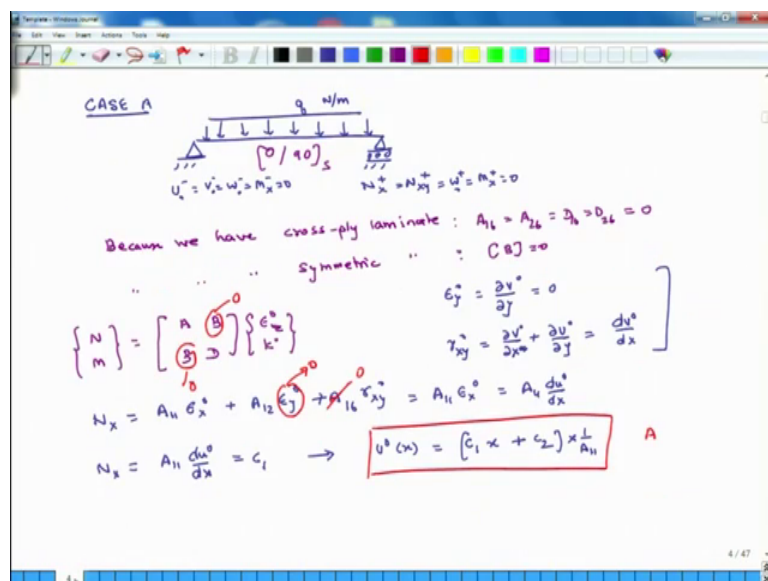 Template - Windows Journal
File Edit View Insert Actions Tools Help
CASE A
q N/m
[0/90]s
U₀⁻ = V₀⁻ = W₀⁻ = Mx⁻ = 0
Nx⁺ = Nxy⁺ = W₀⁺ = Mx⁺ = 0
Because we have cross-ply laminate : A16 = A26 = D16 = D26 = 0
" " " symmetric " : [B] = 0
{N M} = [A B B D] {ε° k°}
0
0
εy° = ∂v°/∂y = 0
γxy° = ∂v°/∂x + ∂u°/∂y = dv°/dx
Nx = A11 εx° + A12 εy° + A16 γxy° = A11 εx° = A11 du°/dx
0
0
Nx = A11 du°/dx = C1 → u°(x) = [C1 x + C2] × 1/A11 A
4 / 47